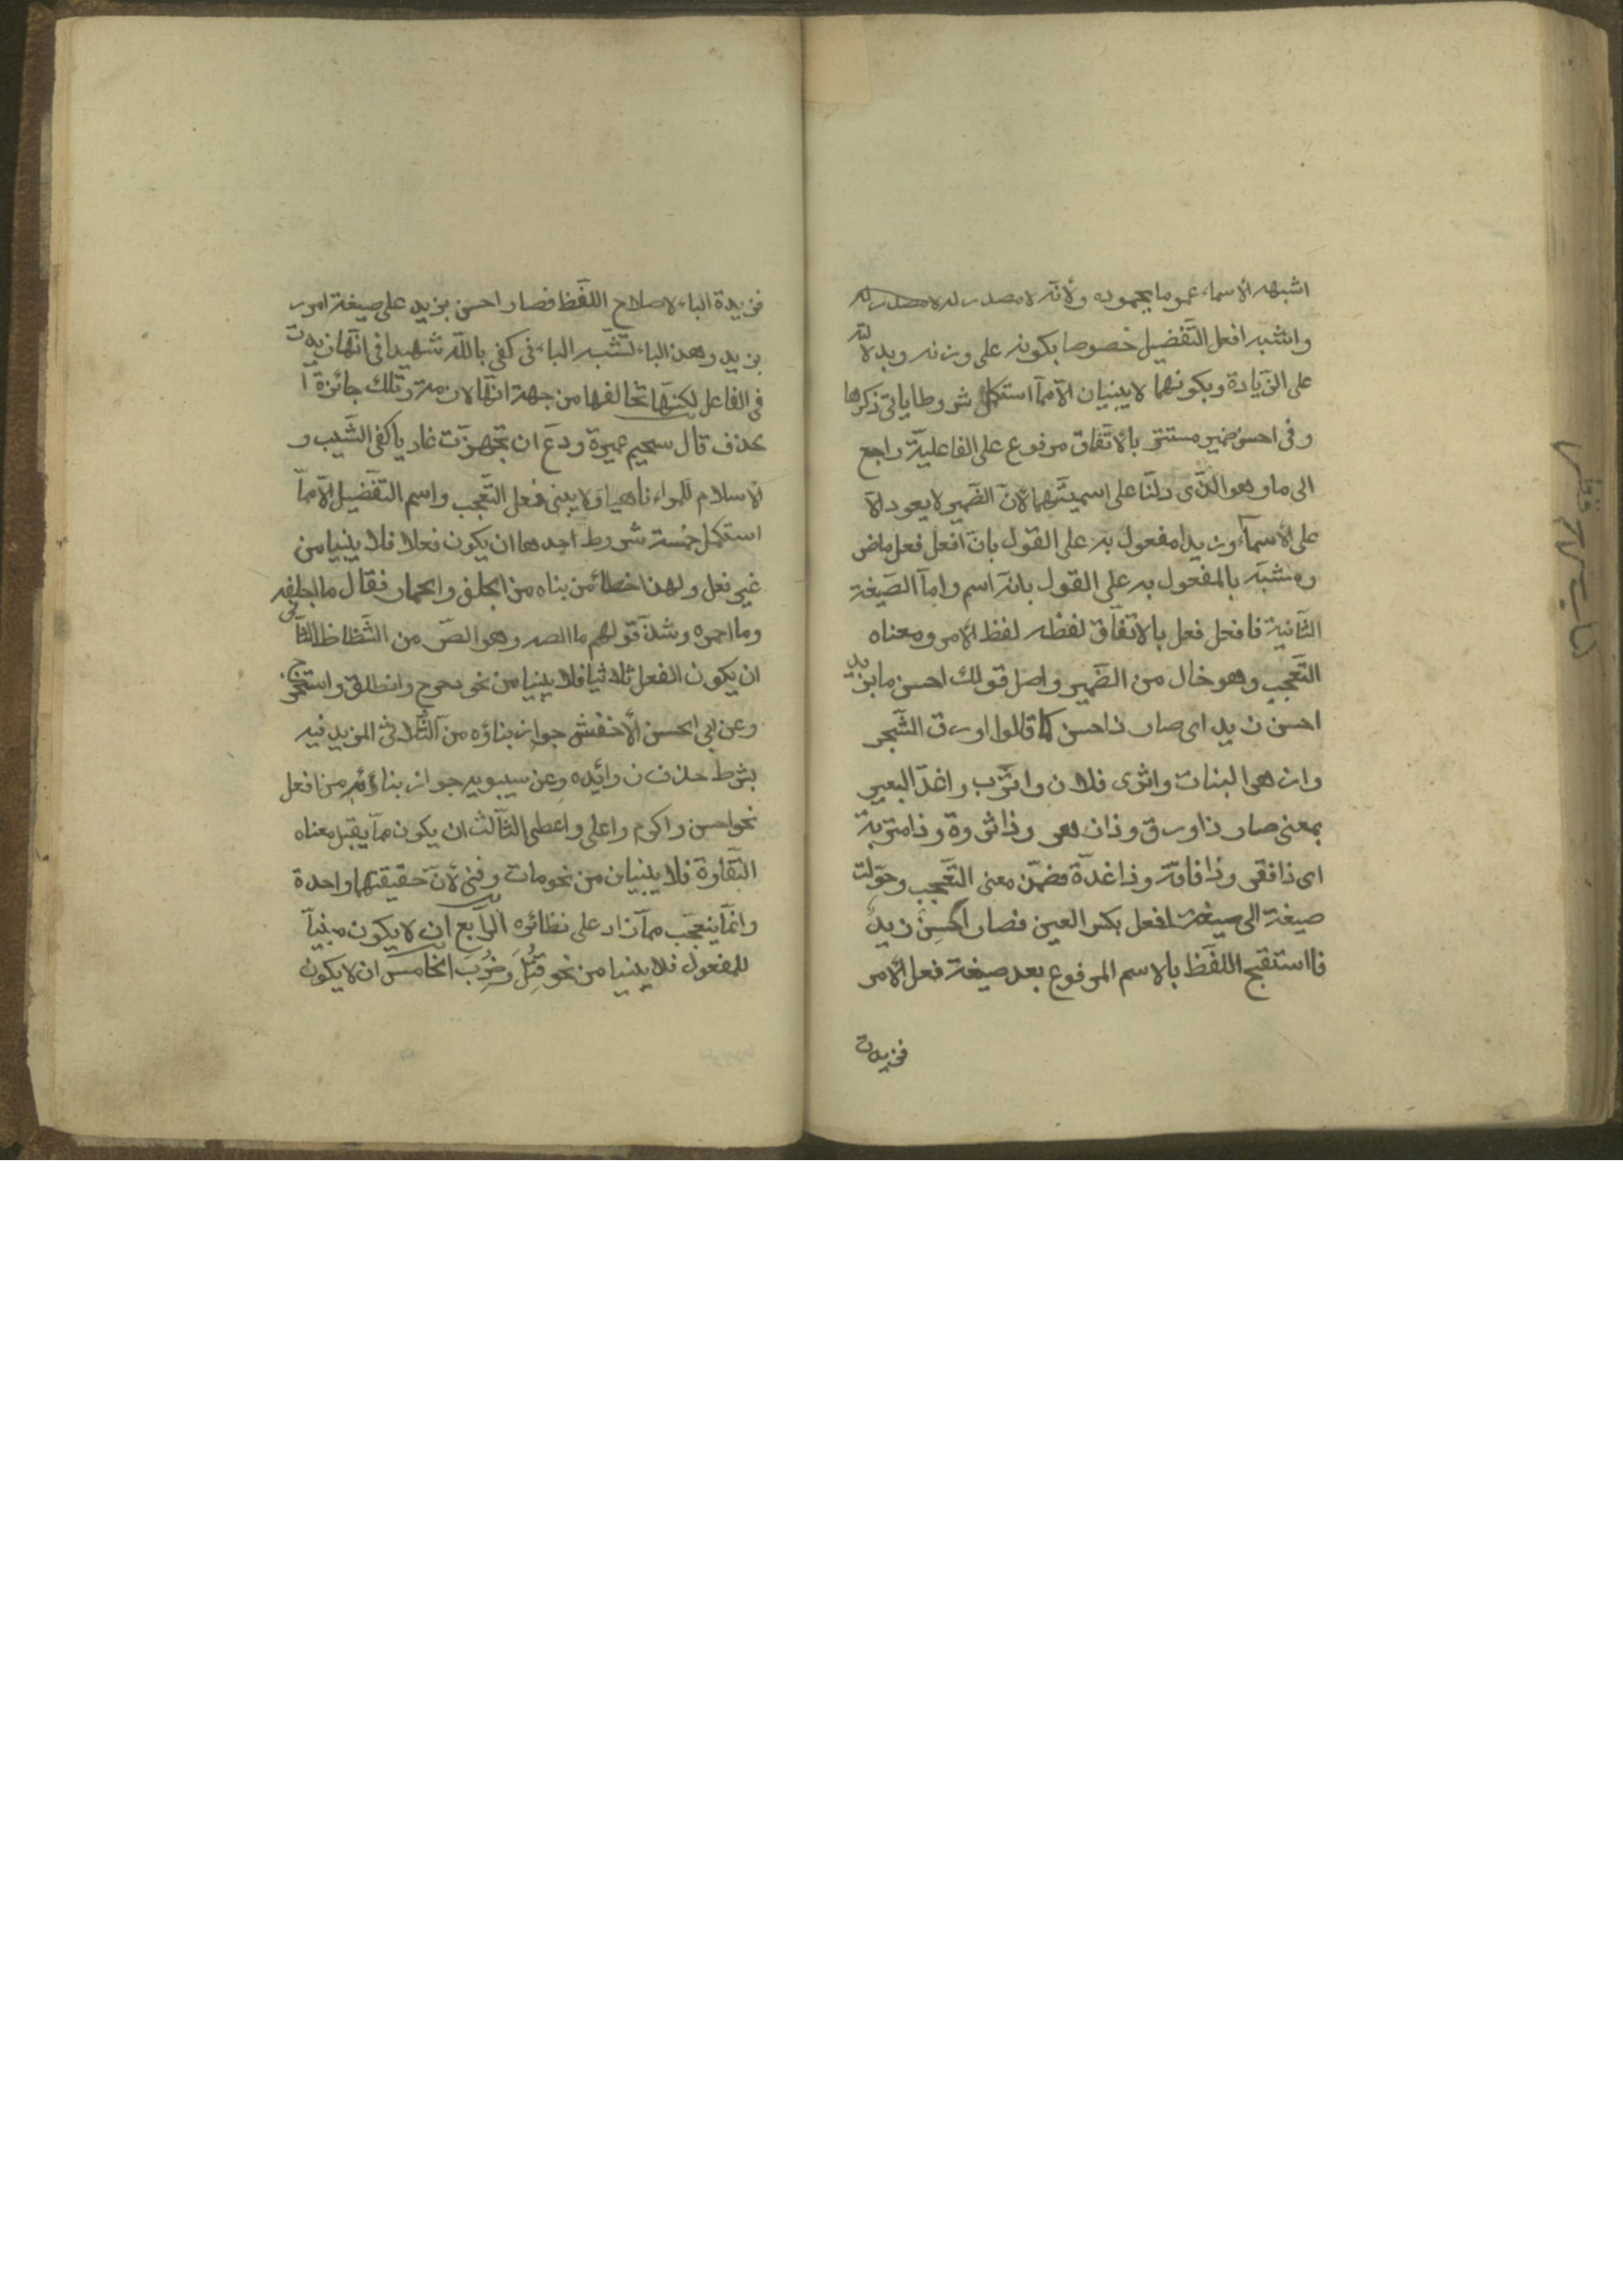 اشبهه الاسماء عموما بجموده ولأنّه لا مصدر له لا مصدر له
واشبه افعل التّفضيل خصوصا بكونه على وزنه وبدلالته
على الزّيادة وبكونهما لا يبنيان الّا ممّا استكمل شروطا ياتى ذكرها
وفى احسن ضمير مستتر بالاتّفاق مرفوع على الفاعليّة راجع
الى ما وهو الذّى دلّنا على اسميّتهما لأنّ الضّمير لا يعود الّا
على الاسماء وزيدا مفعول به على القول بانّ افعل فعل ماض
ومشبّه بالمفعول به على القول بانّه اسم وامّا الصّيغة
الثّانية فافعل فعل بالاتّفاق لفظه لفظ الامر ومعناه
التّعجّب وهو خال من الضّمير واصل قولك احسن ما بزيد
احسن زيد اى صار ذا حسن كما قالوا اورق الشّجر
وازهر البنات واثرى فلان واترب واغدّ البعير
بمعنى صار ذا ورق وذا زهر وذا ثروة وذا متربة
اى ذا فقر وذا فاقة وذا غدّة فضمّن معنى التّعجّب وحوّلت
صيغة الى صيغة افعل بكسر العين فصار احْسِنْ زيدٌ
فااستقبح اللفّظ بالاسم المرفوع بعد صيغة فعل الامر
فزيدت
فزيدة الباء لاصلاح اللفّظ فصار احسن بزيد على صيغة امرر
بزيد وهذ الباء تشّبه الباء فى كفى باللّه شهيدا فى انّها زيدت
فى الفاعل لكنّها تخالفها من جهة انّها لازمة وتلك جائزة ا
لحذف قال سحيم عميرة ودّع ان تجهزّت غاديا كفى الشّيب و
الاسلام للمراء ناهيا ولا يبنى فعل التّعجب واسم التّفضيل الّا ممّا
استكمل خمسة شروط احدها ان يكون فعلا فلا يبنيا من
غير فعل ولهذا خطائ من بناه من الجلف والحمار فقال ما اجلفه
وما احمره وشذّ قولهم ما الصه وهو الصّ من الشّظاظ الثّانى
ان يكون الفعل ثلاثيا فلا يبنيا من نحو دحرج وانطلق واستخرج
وعن ابى الحسن الأخفش جواز بناؤه من الثّلاثى المزيد فيه
بشرط حذف زوائده وعن سيبويه جواز بنائه من افعل
نحو احسن واكرم واعلى واعطى الثّالث ان يكون ممّا يقبل معناه
التّفاوة فلا يبنيان من نحو مات وفنى لأنّ حقيقتهما واحدة
وانّما يتعجّب ممّا زاد على نظائره الرّابع ان لا يكون مبنيّا
للمفعول فلا يبنيا من نحو قُتِلَ وضُرِبَ الخامس ان لا يكون